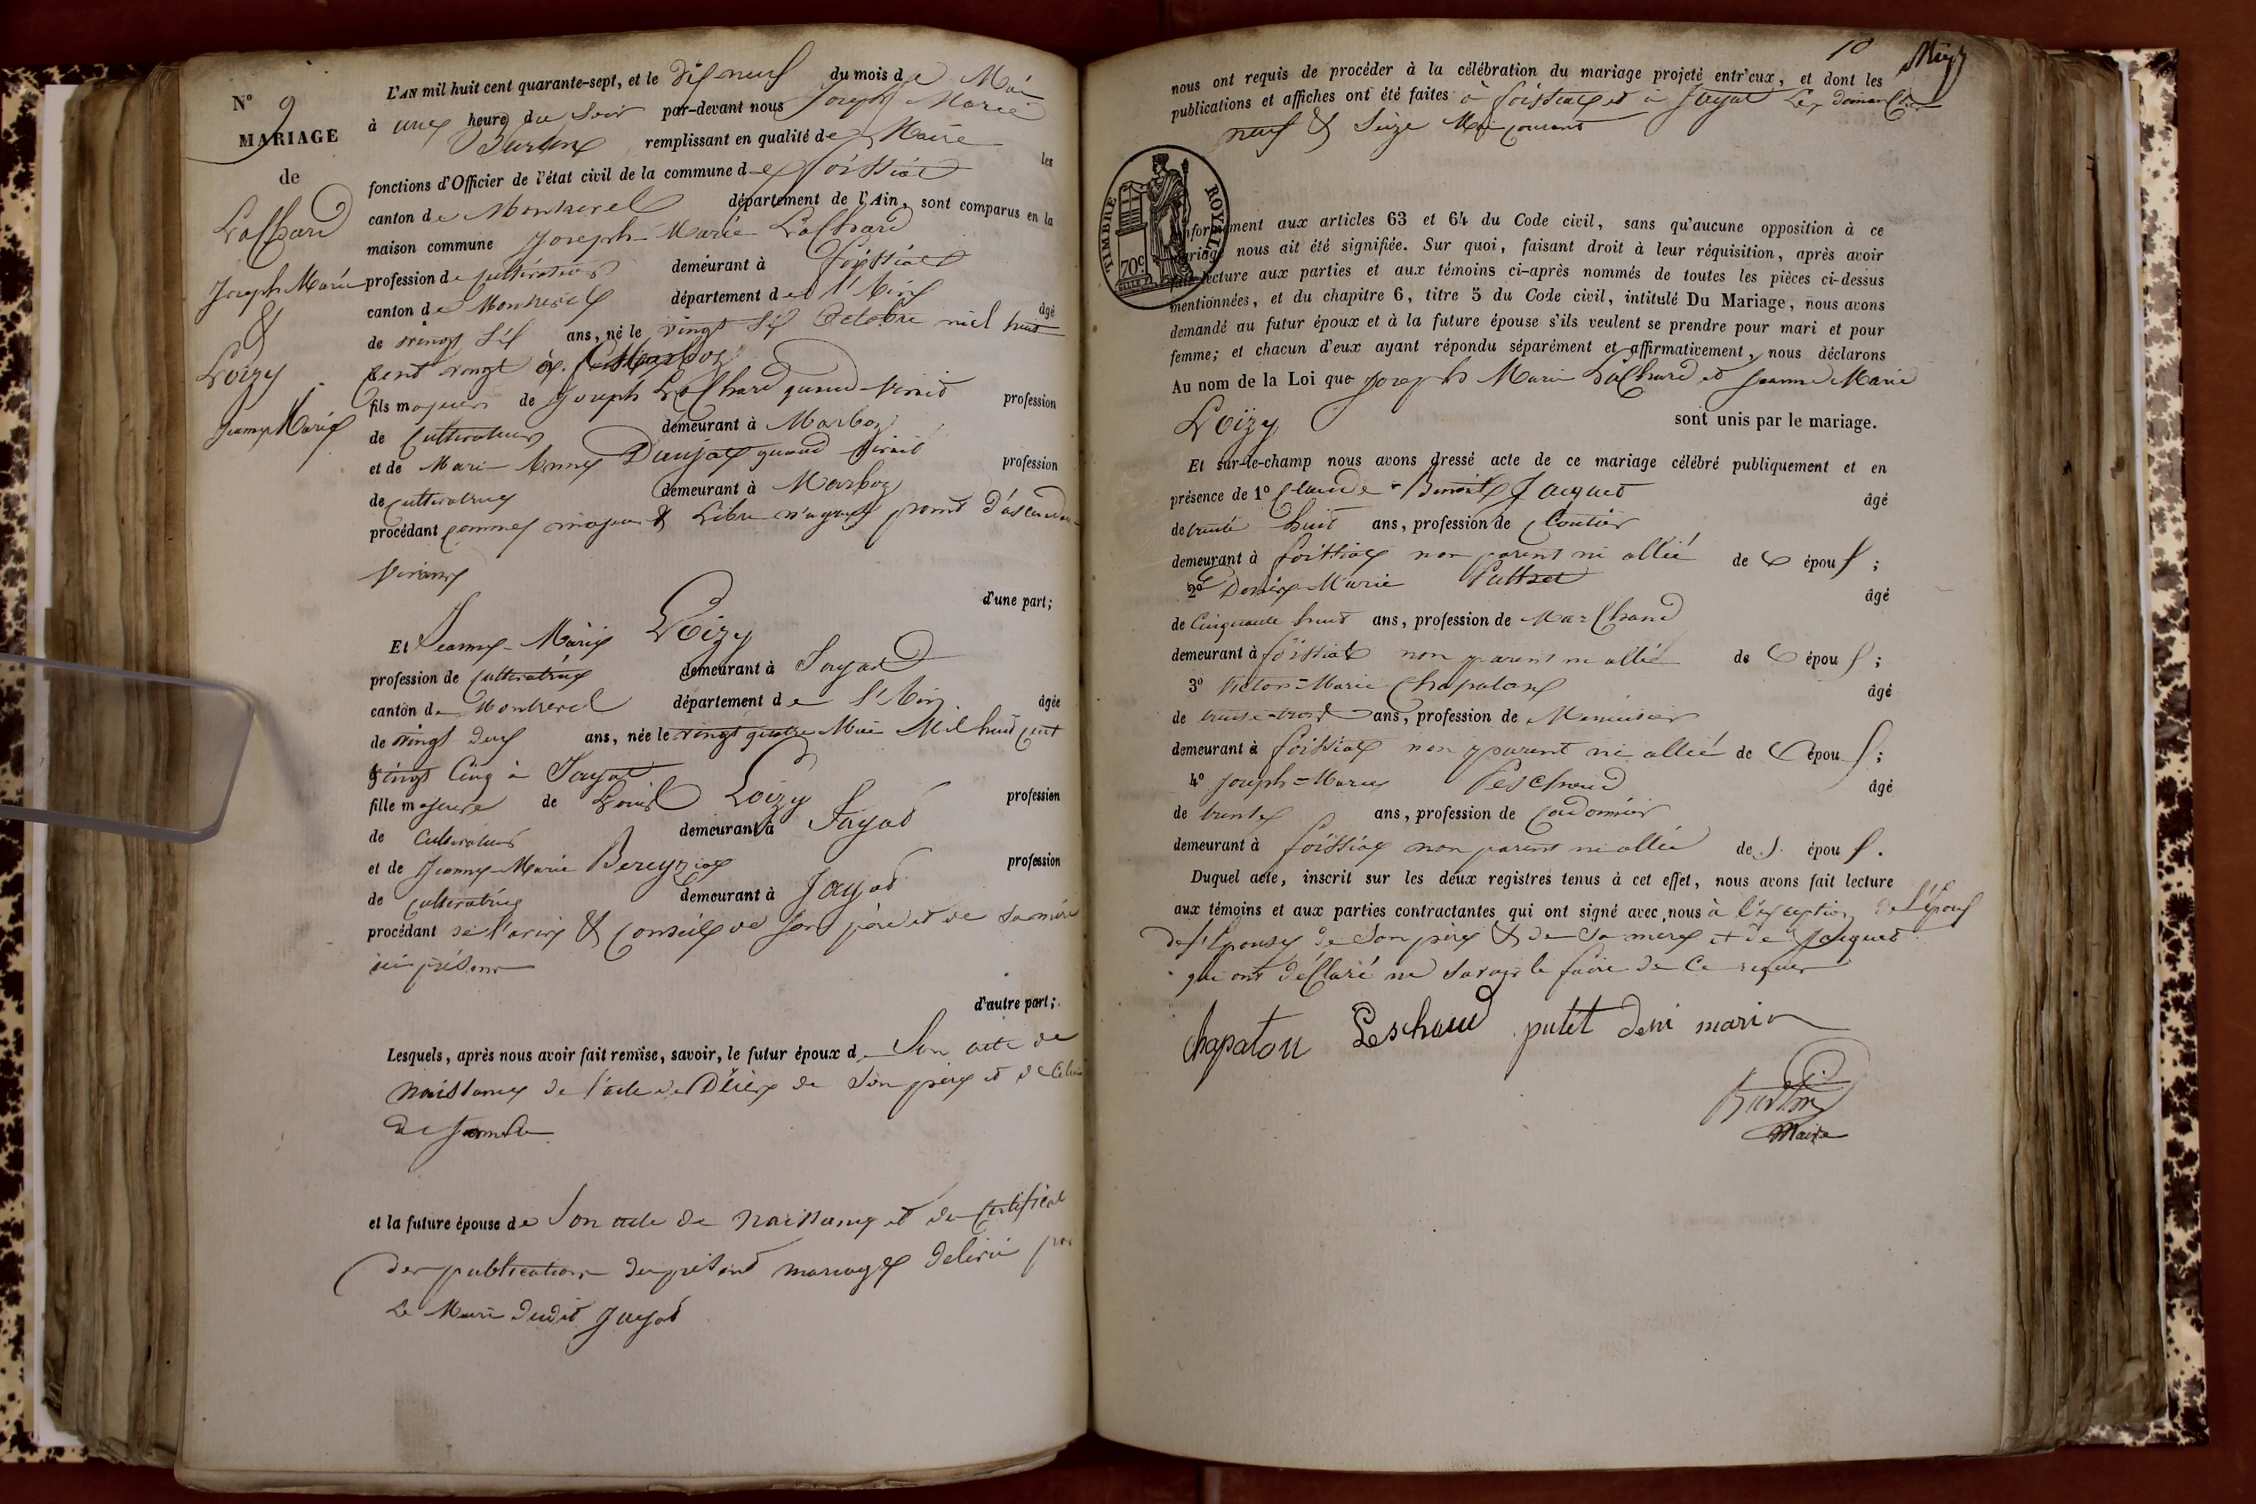 N° 9
MARIAGE
de
Lachard
Joseph Marie
&
Loizy
Jeanne Marie
L'AN mil huit cent quarante-sept, et le dix neuf du mois de Mai
à une heure du soir par-devant nous Joseph Marie
remplissant en qualité de Maire les
fonctions d'Officier de l'état civil de la commune de foissiat
canton de Montrevel département de l'Ain, sont comparus en la
maison commune Joseph-Marie Lachard
profession de cultivateur demeurant à foissiat
canton de Montrevel département de l'Ain âgé
de vingt six ans, né le vingt six Octobre mil huit
cent vingt à Marboz
fils majeur de Joseph Lachard quand vivait profession
de Cultivateur demeurant à Marboz
et de Marie Anne Daujat quand vivait profession
de cultivatrice demeurant à Marboz
procédant comme majeur & libre n'ayant point d'ascendans
vivans
d'une part;
Et Jeanne-Marie Loizy
profession de cultivatrice demeurant à Jayat
canton de Montrevel département de l'Ain âgée
de vingt deux ans, née le vingt quatre Mai Mil huit cent
vingt cinq à Jayat
fille majeure de Louis Loizy profession
de Cultivateur demeurant à Jayat
et de Jeanne-Marie Bereyziat profession
de cultivatrice demeurant à Jayat
procédant de l'avis & conseil de son père et de sa mère
ici présens
d'autre part;
Lesquels, après nous avoir fait remise, savoir, le futur époux de son acte de
naissance de l'acte de Décès de son père et de celui
de sa mère
et la future épouse de son acte de naissance et du certificat
des publications du présent mariage délivré par
Le Maire dudit Jayat
10
nous ont requis de procéder à la célébration du mariage projeté entr'eux, et dont les
publications et affiches ont été faites à foissiat et à Jayat Les dimanches
neuf & seize Mai courant
TIMBRE ROYAL
70c
conformément aux articles 63 et 64 du Code civil, sans qu'aucune opposition à ce
mariage nous ait été signifiée. Sur quoi, faisant droit à leur réquisition, après avoir
fait lecture aux parties et aux témoins ci-après nommés de toutes les pièces ci-dessus
mentionnées, et du chapitre 6, titre 5 du Code civil, intitulé Du Mariage, nous avons
demandé au futur époux et à la future épouse s'ils veulent se prendre pour mari et pour
femme; et chacun d'eux ayant répondu séparément et affirmativement, nous déclarons
Au nom de la Loi que Joseph Marie Lachard et Jeanne Marie
Loizy sont unis par le mariage.
Et sur-le-champ nous avons dressé acte de ce mariage célébré publiquement et en
présence de 1° Claude-Benoit Jacquet âgé
de trente huit ans, profession de
demeurant à foissiat non parent ni allié de époux;
2° Denis Marie Puthet âgé
de Cinquante huit ans, profession de Marchand
demeurant à foissiat non parent ni allié de époux;
3° Victor-Marie Chapaton âgé
de trente-trois ans, profession de Menuisier
demeurant à foissiat non parent ni allié de époux;
4° Joseph-Marie Peschoud âgé
de trente ans, profession de Cordonnier
demeurant à foissiat non parent ni allié de s époux.
Duquel acte, inscrit sur les deux registres tenus à cet effet, nous avons fait lecture
aux témoins et aux parties contractantes qui ont signé avec nous à l'exception de l'époux
de l'épouse de son père & de sa mère et de Jacquet
qui ont déclaré ne savoir le faire de ce requis
Chapaton Peschoud putet deni marie
Maire